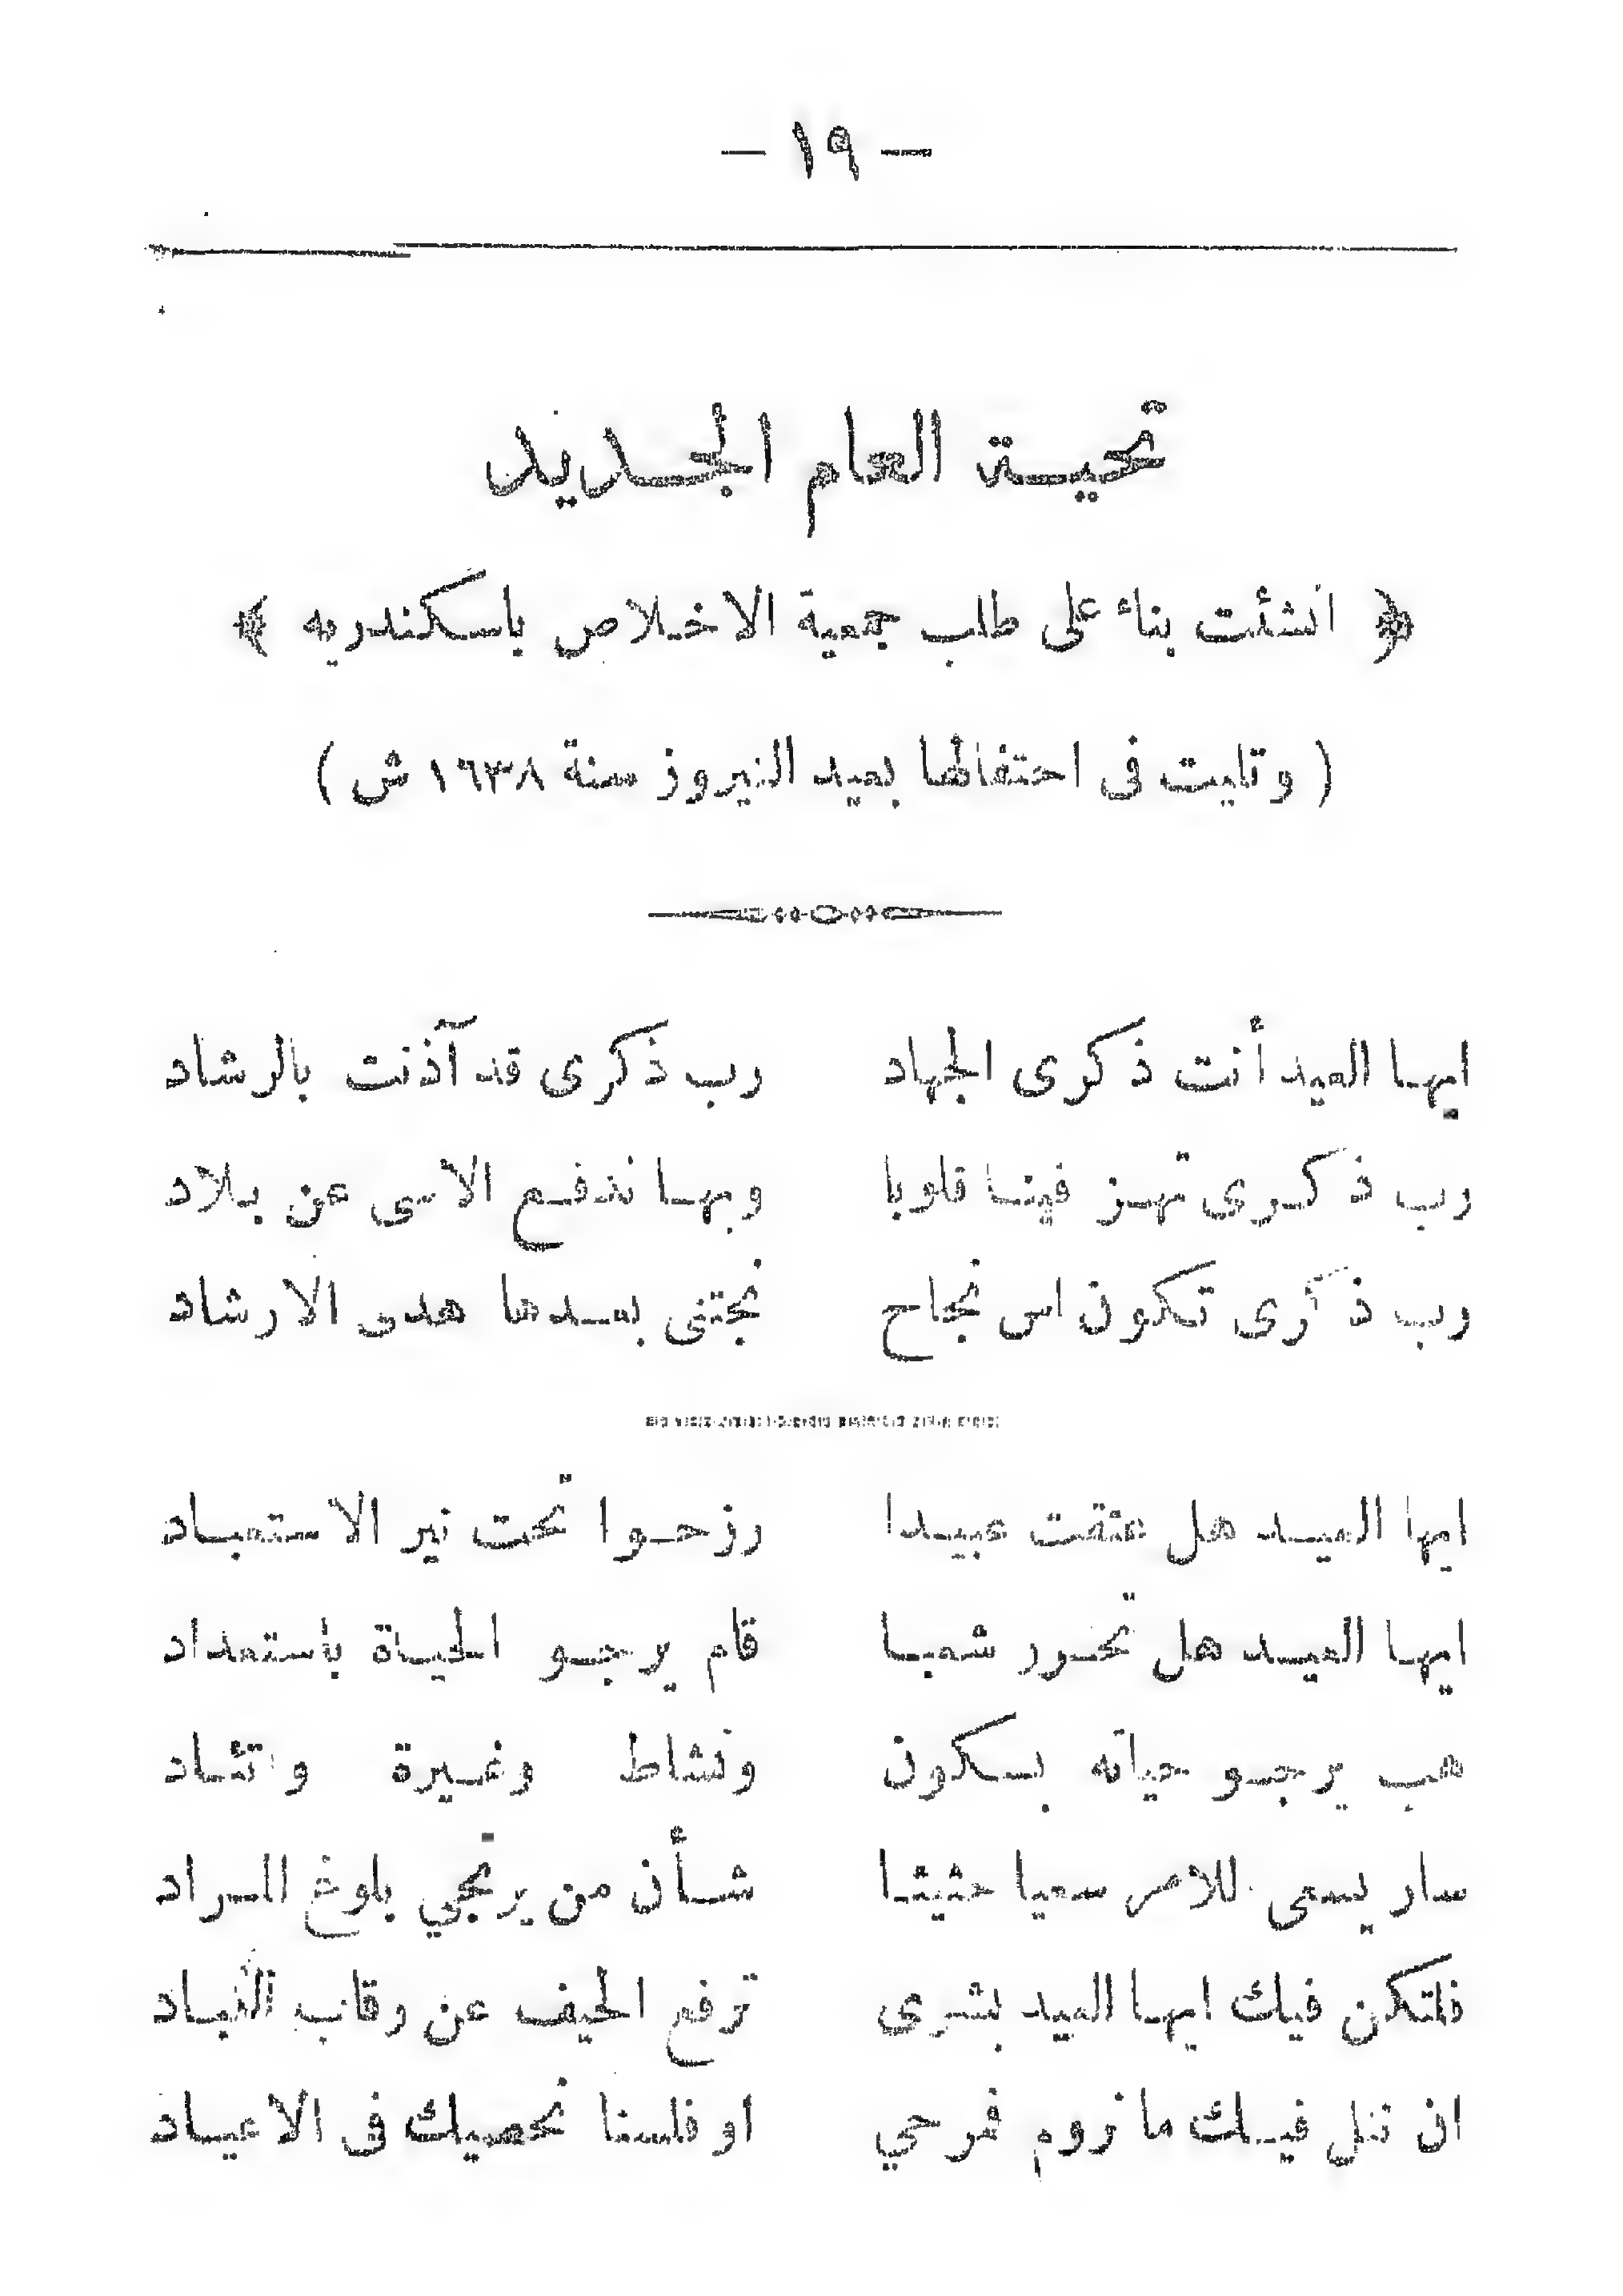 — ١٩ —
تحية العام الجديد
﴿ انشئت بناء على طلب جمعية الاخلاص باسكندريه ﴾
( وتليت فى احتفالها بعيد النيروز سنة ١٦٣٨ ش )
ايها العيد أنت ذكرى الجهاد رب ذكرى قد آذنت بالرشاد
رب ذكرى تهز فينا قلوبا وبها ندفع الاسى عن بلاد
رب ذكرى تكون اس نجاح نجتنى بعدها هدى الارشاد
ايها العيد هل عتقت عبيدا رزحوا تحت نير الاستعباد
ايها العيد هل تحرر شعبا قام يرجو الحياة بأستعداد
هب يرجو حياته بسكون ونشاط وغيرة واتئاد
سار يسعى للامر سعيا حثيثا شأن من يرتجي بلوغ المراد
فلتكن فيك ايها العيد بشرى ترفع الحيف عن رقاب العباد
ان ننل فيك ما نروم فمرحي او فلسنا نحصيك فى الاعياد